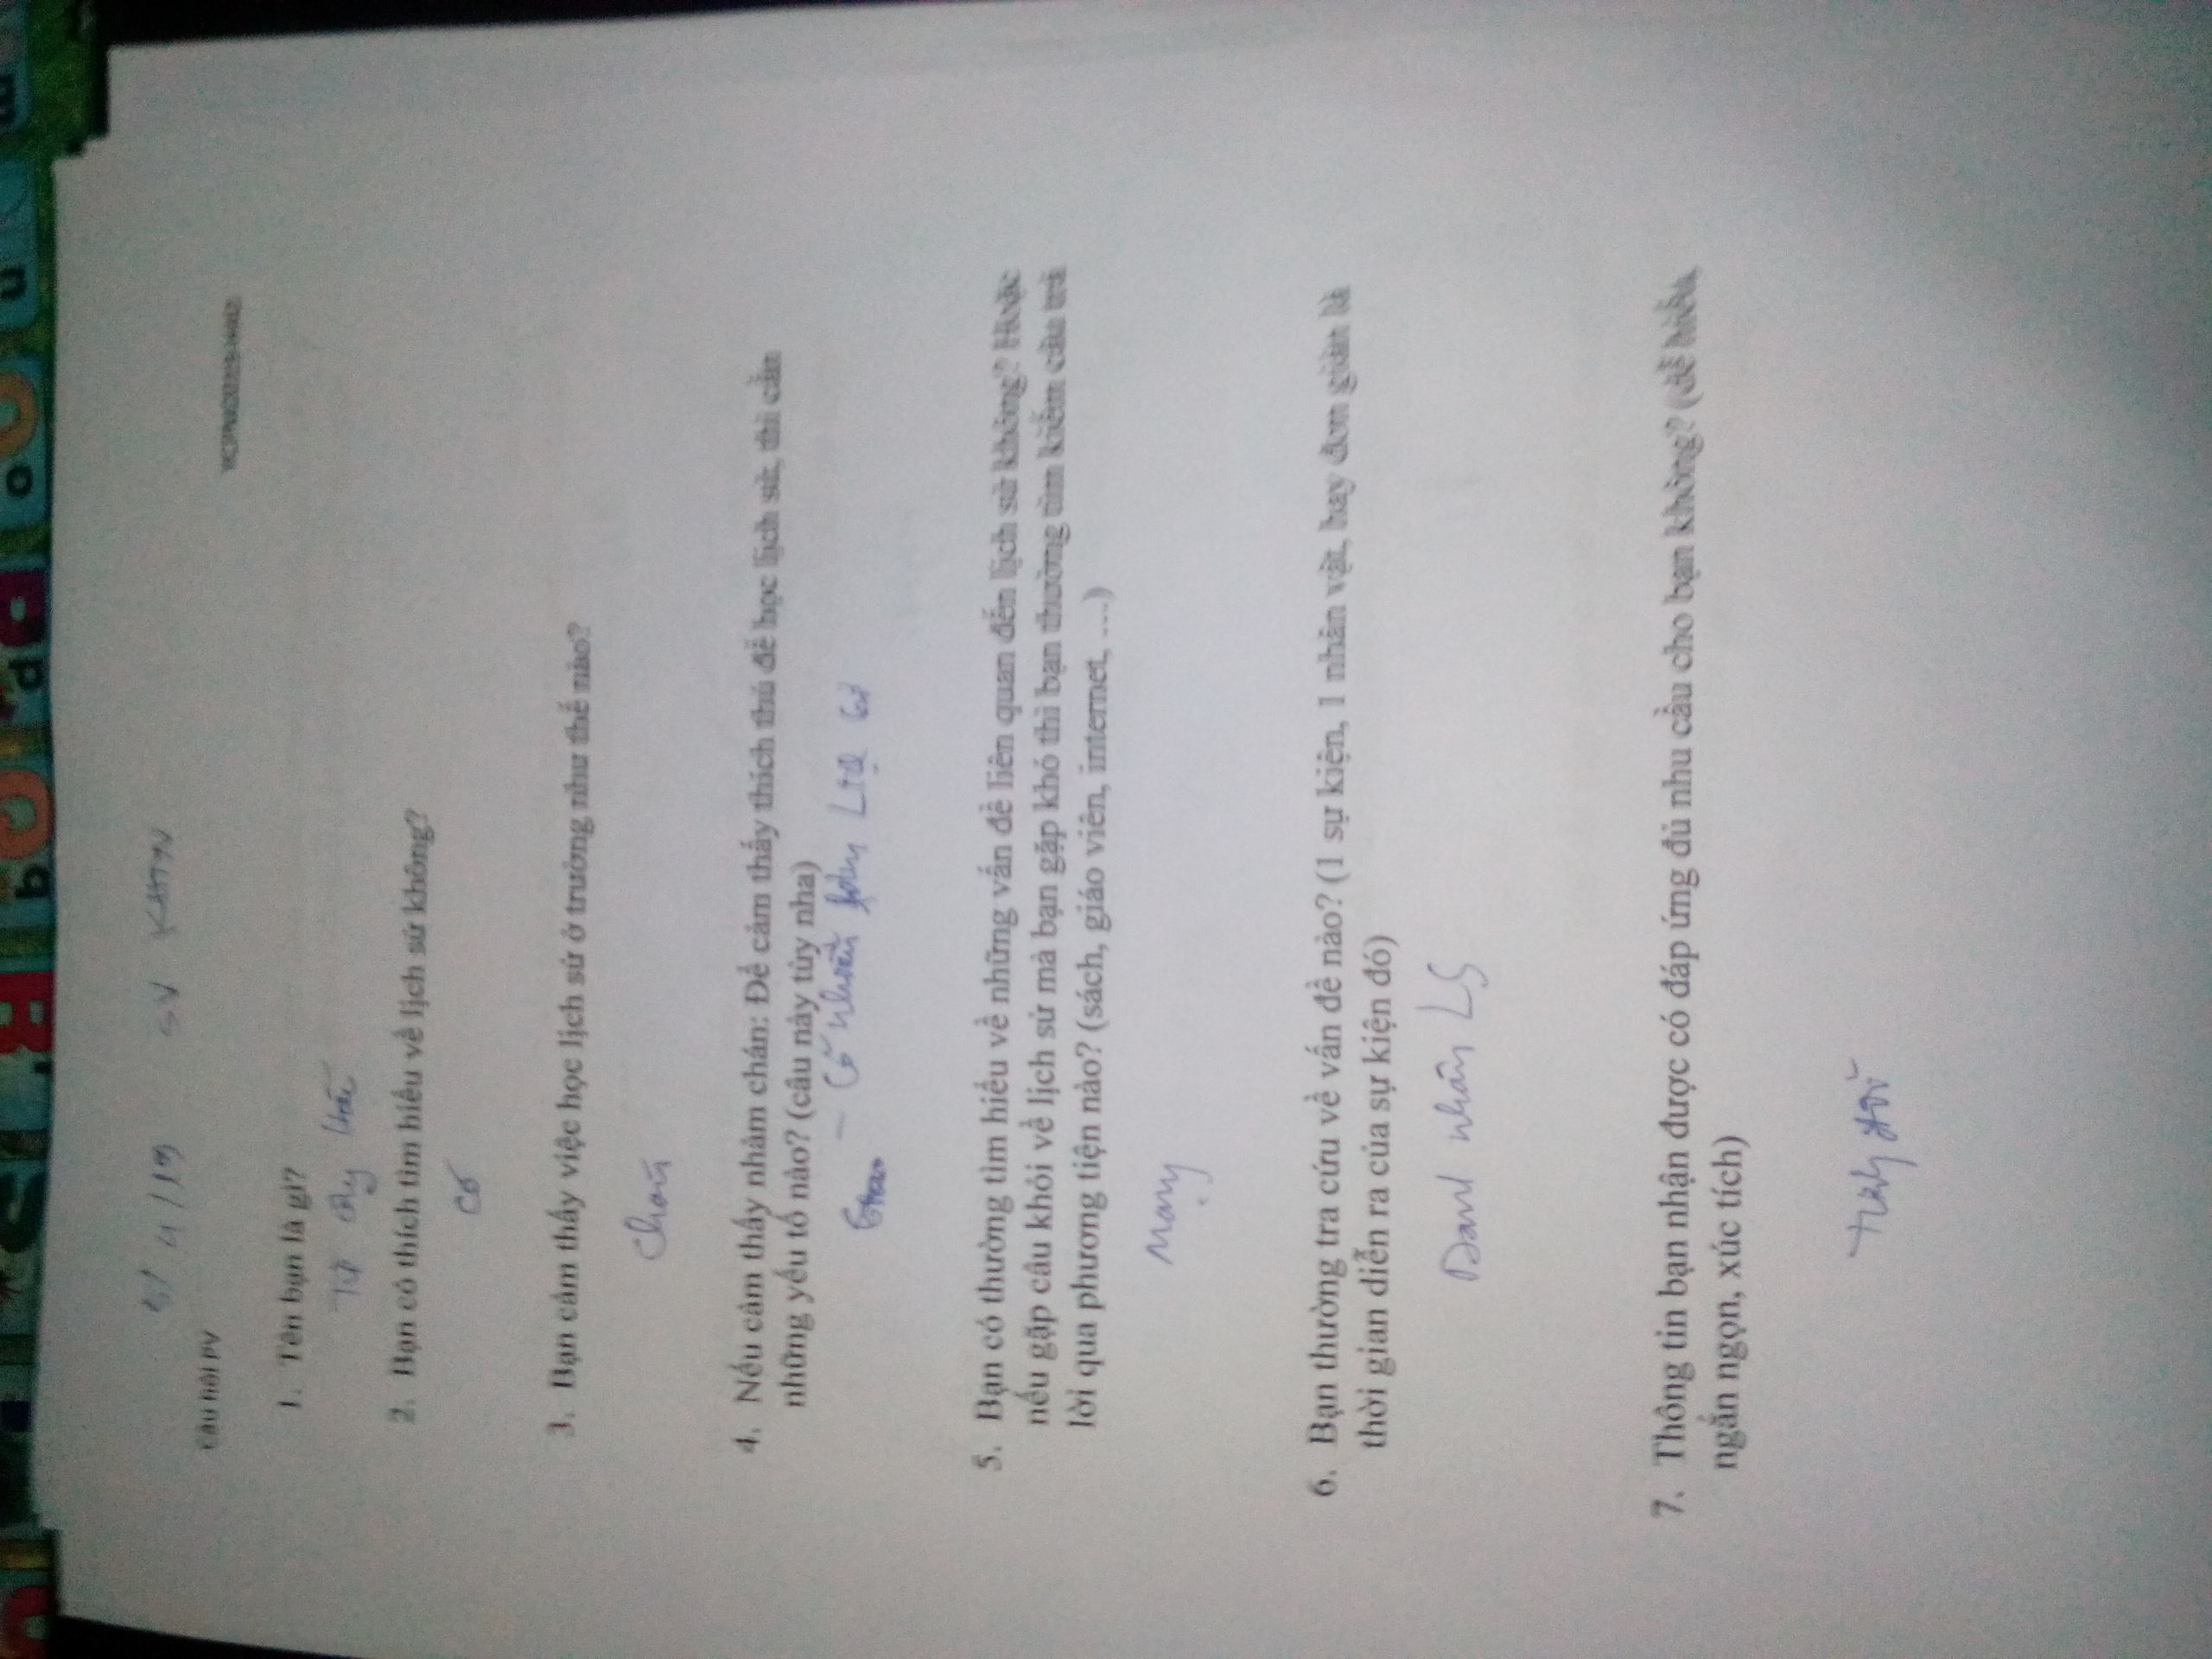 5/4/19 SV KHTN
Câu hỏi PV
1. Tên bạn là gì?
2. Bạn có thích tìm hiểu về lịch sử không?
có
3. Bạn cảm thấy việc học lịch sử ở trường như thế nào?
Chán
4. Nếu cảm thấy nhàm chán: Để cảm thấy thích thú để học lịch sử, thì cần
những yếu tố nào? (câu này tùy nha)
- Có nhiều
5. Bạn có thường tìm hiểu về những vấn đề liên quan đến lịch sử không? Hoặc
nếu gặp câu khỏi về lịch sử mà bạn gặp khó thì bạn thường tìm kiếm câu trả
lời qua phương tiện nào? (sách, giáo viên, internet, ....)
Mạng
6. Bạn thường tra cứu về vấn đề nào? (1 sự kiện, 1 nhân vật, hay đơn giản là
thời gian diễn ra của sự kiện đó)
Danh nhân LS
7. Thông tin bạn nhận được có đáp ứng đủ nhu cầu cho bạn không? (dễ hiểu,
ngắn ngọn, xúc tích)